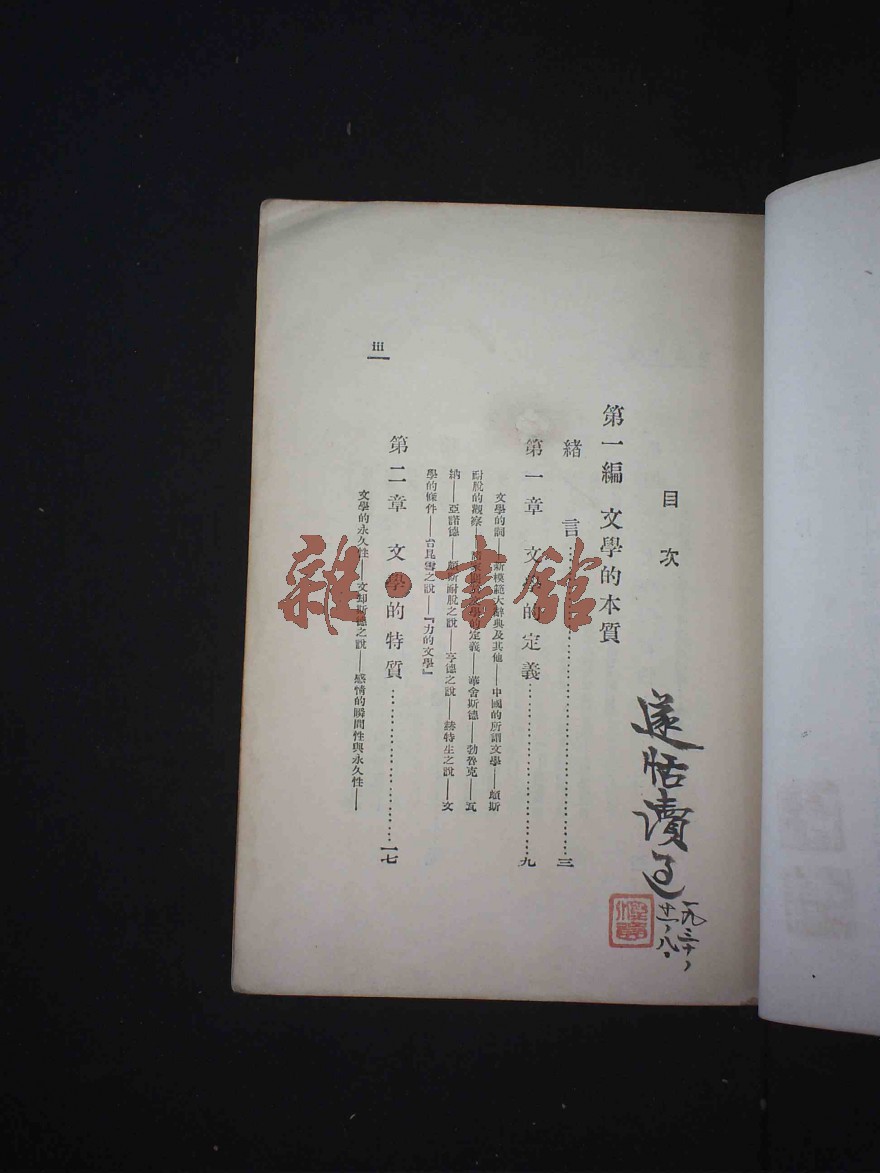 目次
第一編 文學的本質
緒言……三
第一章 文學的定義……九
文學的詞——新模範大辭典及其他——中國的所謂文學——頗斯
耐脫的觀察——文學的定義——華舍斯德——勃魯克——瓦
納——亞諾德——頗斯耐脫之說——亨德之說——赫特生之說——文
學的條件——台昆雪之說——『力的文學』
第二章 文學的特質……一七
文學的永久性——文却斯德之說——感情的瞬間性與永久性——
iii
讀過
一九三十、
十一、八、
雜·書館